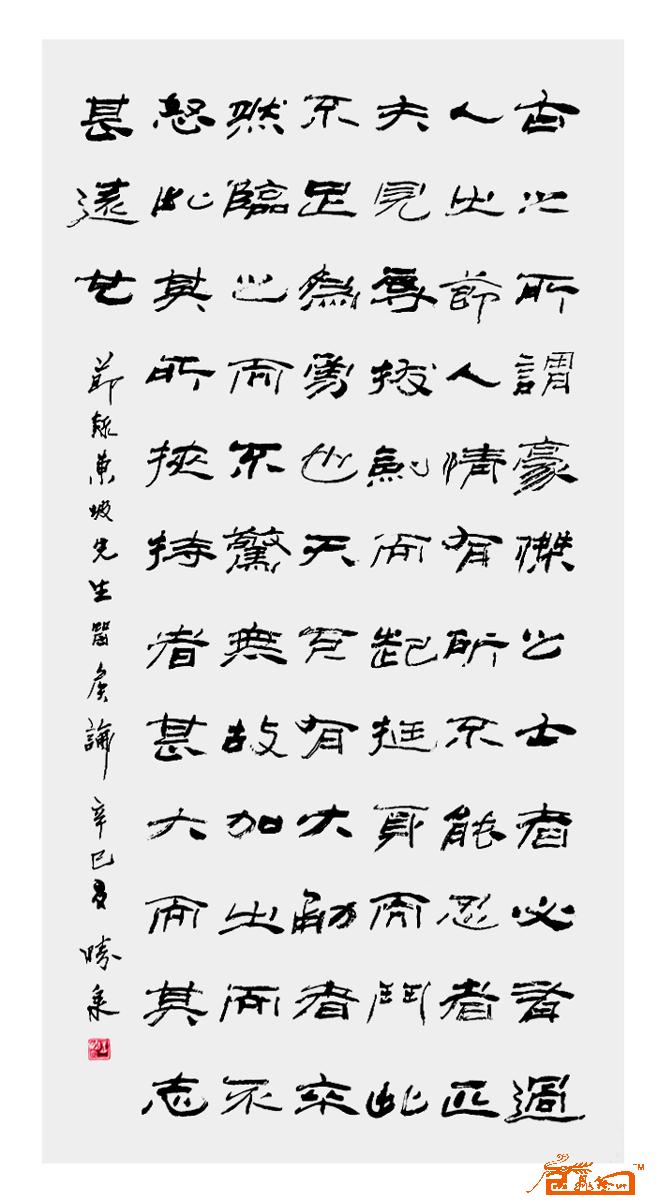 古之所謂豪傑之士者必有過
人之節人情有所不能忍者匹
夫見辱拔劍而起挺身而鬥此
不足為勇也天下有大勇者卒
然臨之而不驚無故加之而不
怒此其所挾持者甚大而其志
甚遠也
節錄東坡先生留侯論 辛巳夏